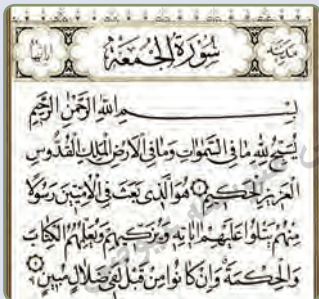 مدنية سورة الجمعة آياتها
بسم الله الرحمن الرحيم
يسبح لله ما في السموات وما في الأرض الملك القدوس
العزيز الحكيم هو الذي بعث في الأميين رسولا
منهم يتلوا عليهم آياته ويزكيهم ويعلمهم الكتاب
والحكمة وإن كانوا من قبل لفي ضلال مبين